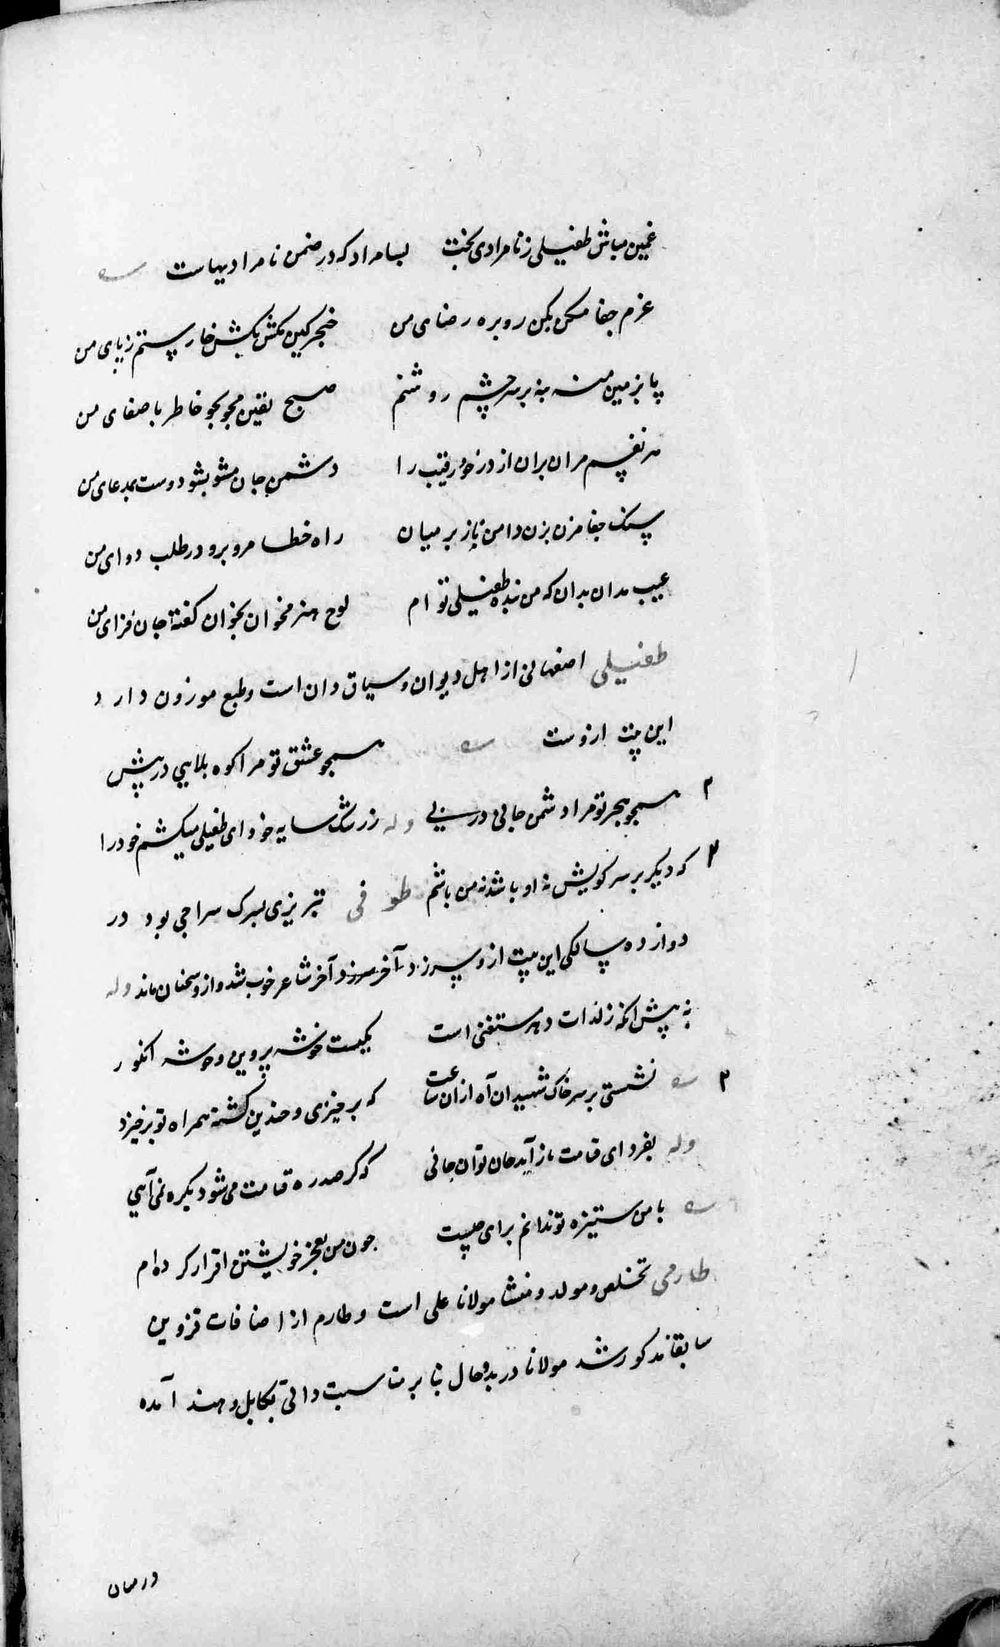 غمین مباش طفیلی ز نامرادی بخت بسا مراد که در ضمن نامرادیهاست
عزم جفا مکن بکن رو بره رضای من خنجر کین مکش بکش خار ستم ز پای من
پا بزمین منه بنه بر سر چشم روشنم صبح یقین مجو بجو خاطر با صفای من
هر نفسم مران بران از در خود رقیب را دشمن جان مشو بشو دوست بمدعای من
سنک جفا مزن بزن دامن ناز بر میان راه خطا مرو برو در طلب دوای من
عیب مدان بدان که من بنده طفیلی تو ام لوح هنر مخوان بخوان گفتهٔ جان فزای من
طفیلی اصفهانی از اهل دیوان و سیاق دان است و طبع موزون دارد
این بیت ازوست همچو عشق تو مرا کوه بلایی در پیش
همچو هجر تو مرا دشمن جانی در پی وله ز رشک سایه خود ای طفیلی میکشم خود را
که دیگر بر سر کویش نه او باشد نه من باشم طوفی تبریزی پسرک سراجی بود در
دوازده سالکی این بیت ازو سر زد آخر شاعر خوب شد و ازو سخنان ماند وله
به پیش انکه ز لذات دهر مستغنی است یکیست خوشه پروین و خوشه انکور
نشستی بر سر خاک شهیدان آه ازان ساعت که برخیزی و چندین کشته همراه تو برخیزد
وله بفردای قیامت باز آید جان توان جانی که گر صد ره قیامت می شود یکره نمی آیی
با من ستیزه تو ندانم برای چیست چون من بعجز خویشتن اقرار کرده ام
طارمی تخلص و مولد و منشا مولانا علی است و طارم از اضافات قزوین
سابقا مذکور شد مولانا در بدو حال بنا بر مناسبت ذاتی بکابل و هند آمده
درمیان